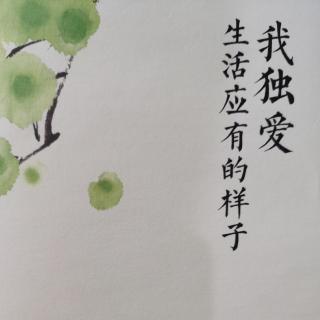 我独爱
生活应有的样子